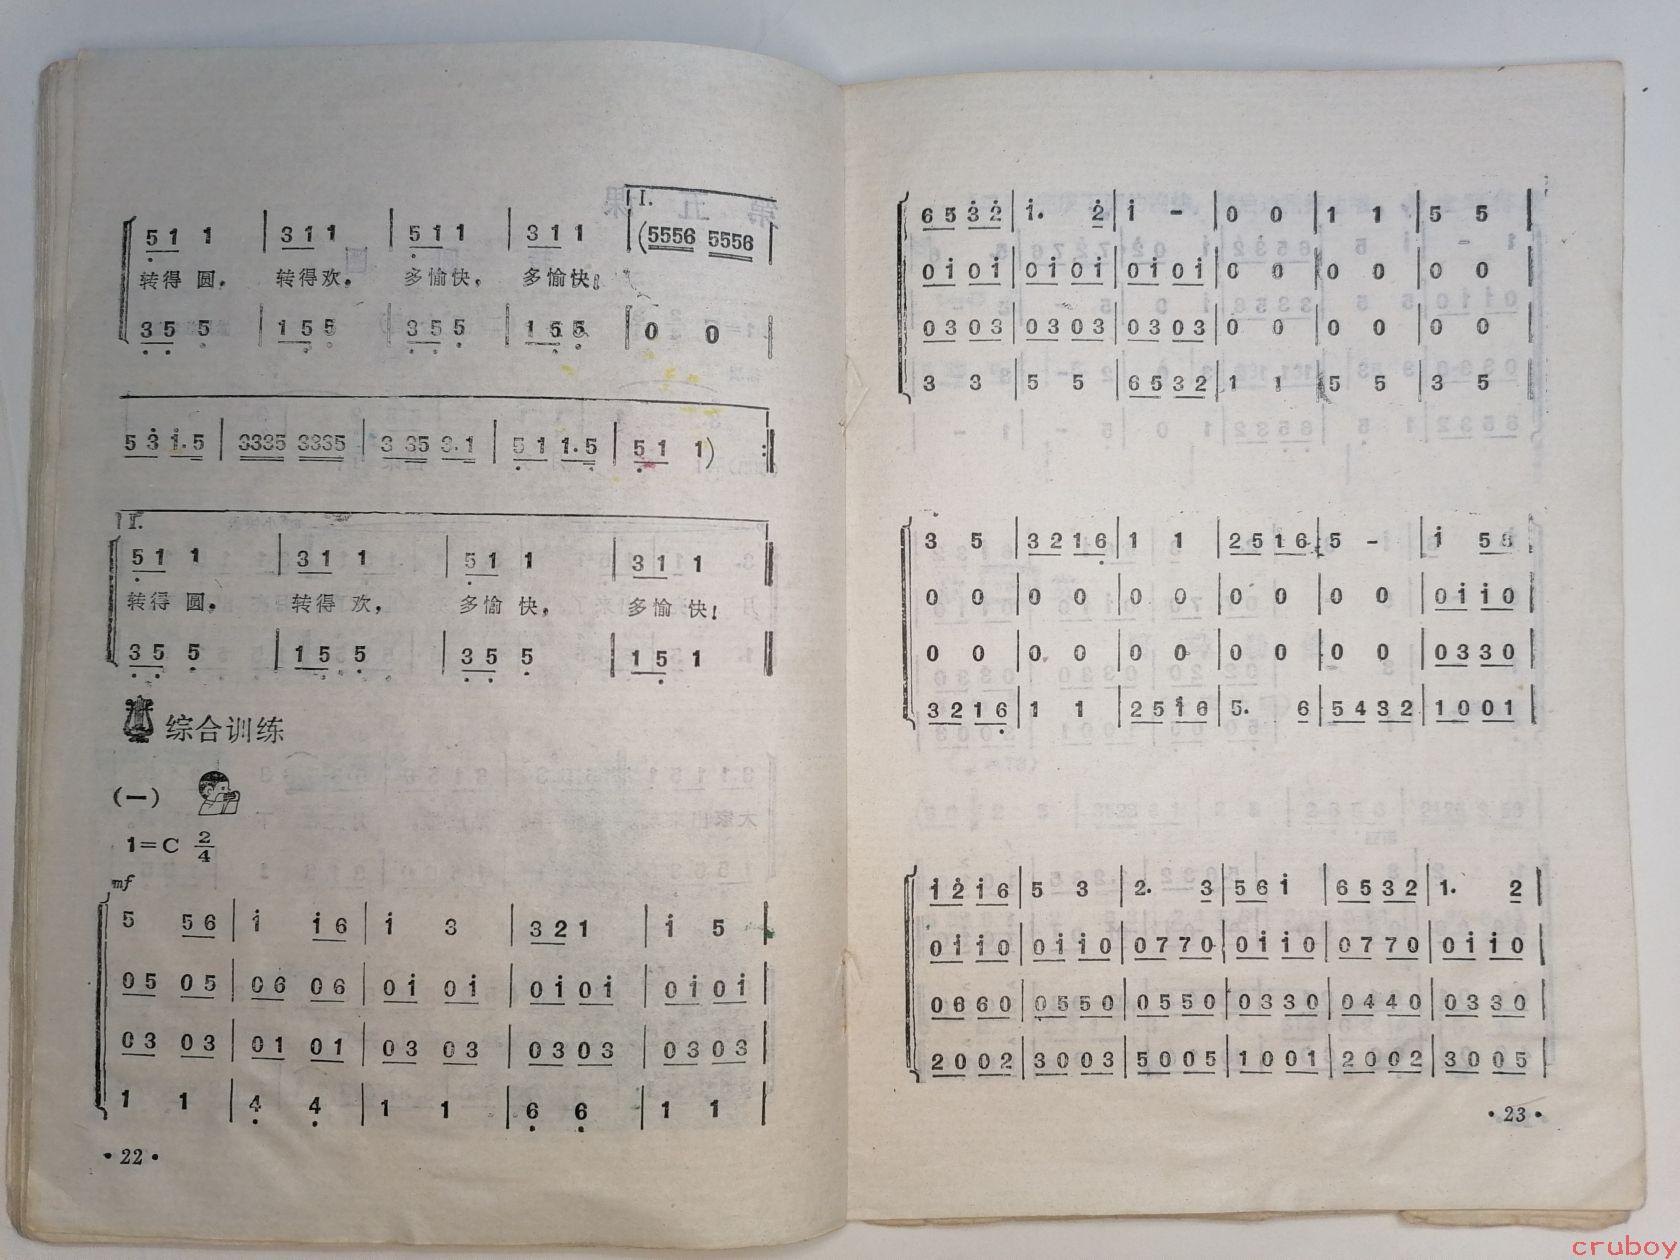 I.
5 1 1 | 3 1 1 | 5 1 1 | 3 1 1 | (5556 5556 |
转得 圆，转得欢，多愉快，多愉快。
3 5 5 | 1 5 5 | 3 5 5 | 1 5 5 | 0 0 |
5 3 i. 5 | 3335 3335 | 3 35 3. 1 | 5 1 1. 5 | 5 1 1) :|
II.
5 1 1 | 3 1 1 | 5 1 1 | 3 1 1 ‖
转得 圆，转得 欢，多愉 快，多愉 快！
3 5 5 | 1 5 5 | 3 5 5 | 1 5 1 ‖
综合训练
(一)
1=C 2/4
mf
5 5 6 | i i 6 | i 3 | 3 2 1 | i 5 |
0 5 0 5 | 0 6 0 6 | 0 i 0 i | 0 i 0 i | 0 i 0 i |
0 3 0 3 | 0 1 0 1 | 0 3 0 3 | 0 3 0 3 | 0 3 0 3 |
1 1 | 4 4 | 1 1 | 6 6 | 1 1 |
·22·
6 5 3 2 | i. 2 | i - | 0 0 | 1 1 | 5 5 |
0 i 0 i | 0 i 0 i | 0 i 0 i | 0 0 | 0 0 | 0 0 |
0 3 0 3 | 0 3 0 3 | 0 3 0 3 | 0 0 | 0 0 | 0 0 |
3 3 | 5 5 | 6 5 3 2 | 1 1 | 5 5 | 3 5 |
3 5 | 3 2 1 6 | 1 1 | 2 5 1 6 | 5 - | i 5 5 |
0 0 | 0 0 | 0 0 | 0 0 | 0 0 | 0 i i 0 |
0 0 | 0 0 | 0 0 | 0 0 | 0 0 | 0 3 3 0 |
3 2 1 6 | 1 1 | 2 5 1 6 | 5. 6 | 5 4 3 2 | 1 0 0 1 |
i 2 i 6 | 5 3 | 2. 3 | 5 6 i | 6 5 3 2 | 1. 2 |
0 i i 0 | 0 i i 0 | 0 7 7 0 | 0 i i 0 | 0 7 7 0 | 0 i i 0 |
0 6 6 0 | 0 5 5 0 | 0 5 5 0 | 0 3 3 0 | 0 4 4 0 | 0 3 3 0 |
2 0 0 2 | 3 0 0 3 | 5 0 0 5 | 1 0 0 1 | 2 0 0 2 | 3 0 0 5 |
·23·
cruboy